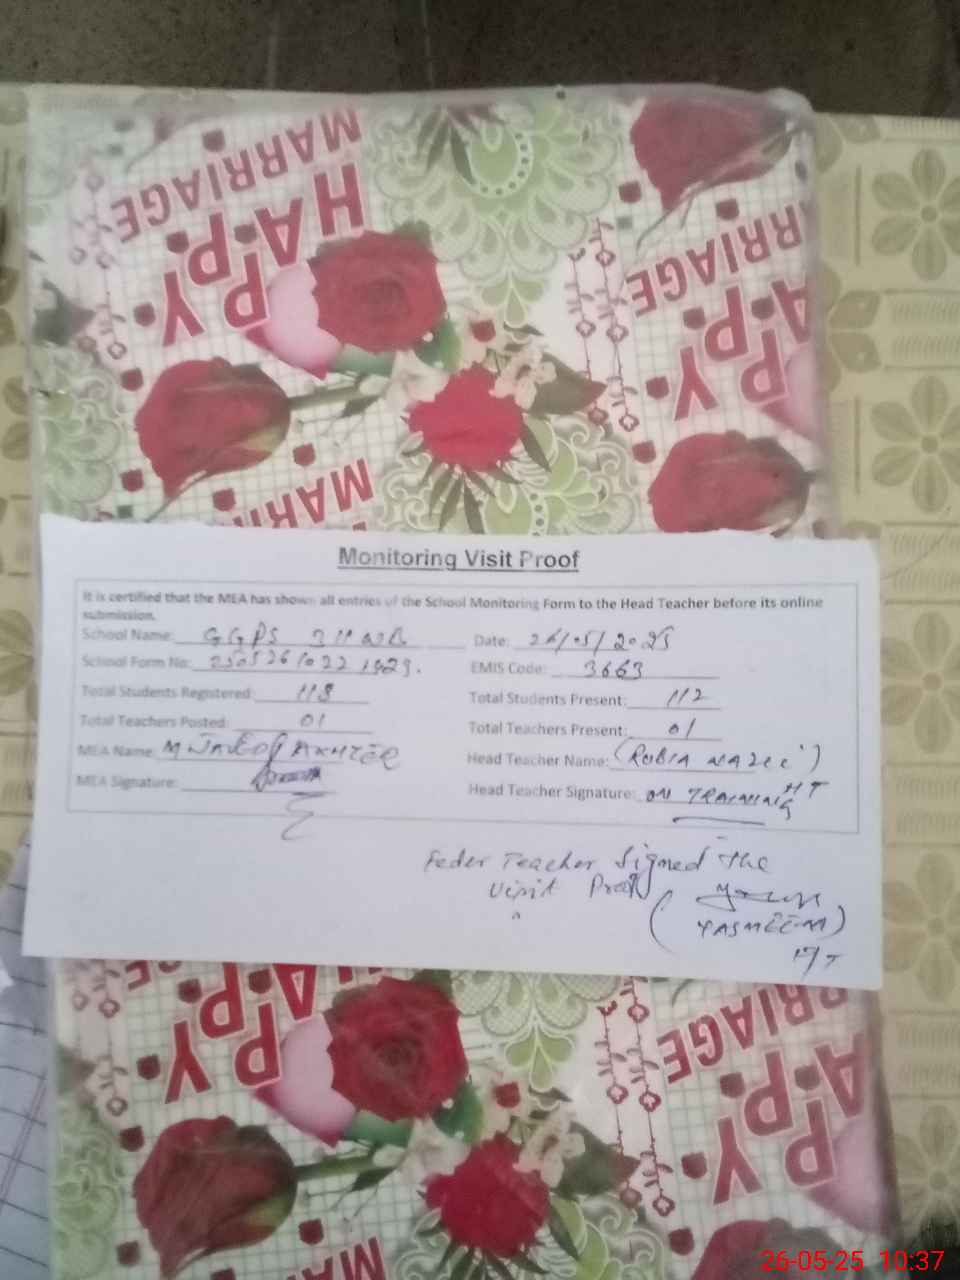 MARRIAGE
HAPPY
RRIAGE
APPY
MARR
Monitoring Visit Proof
It is certified that the MEA has shown all entries of the School Monitoring Form to the Head Teacher before its online
submission.
School Name: GGPS 311 WB Date: 26/05/2025
School Form No: EMIS Code: 3663
Total Students Registered: 118 Total Students Present: 112
Total Teachers Posted: 01 Total Teachers Present: 01
MEA Name: M AKHTER Head Teacher Name: (RUBIA
MEA Signature: Head Teacher Signature: ON TRAINING
HT
Teacher Signed the
Visit Proof
(YASMEEN)
HAPPY
RRIAGE
APPY
MA
26-05-25 10:37